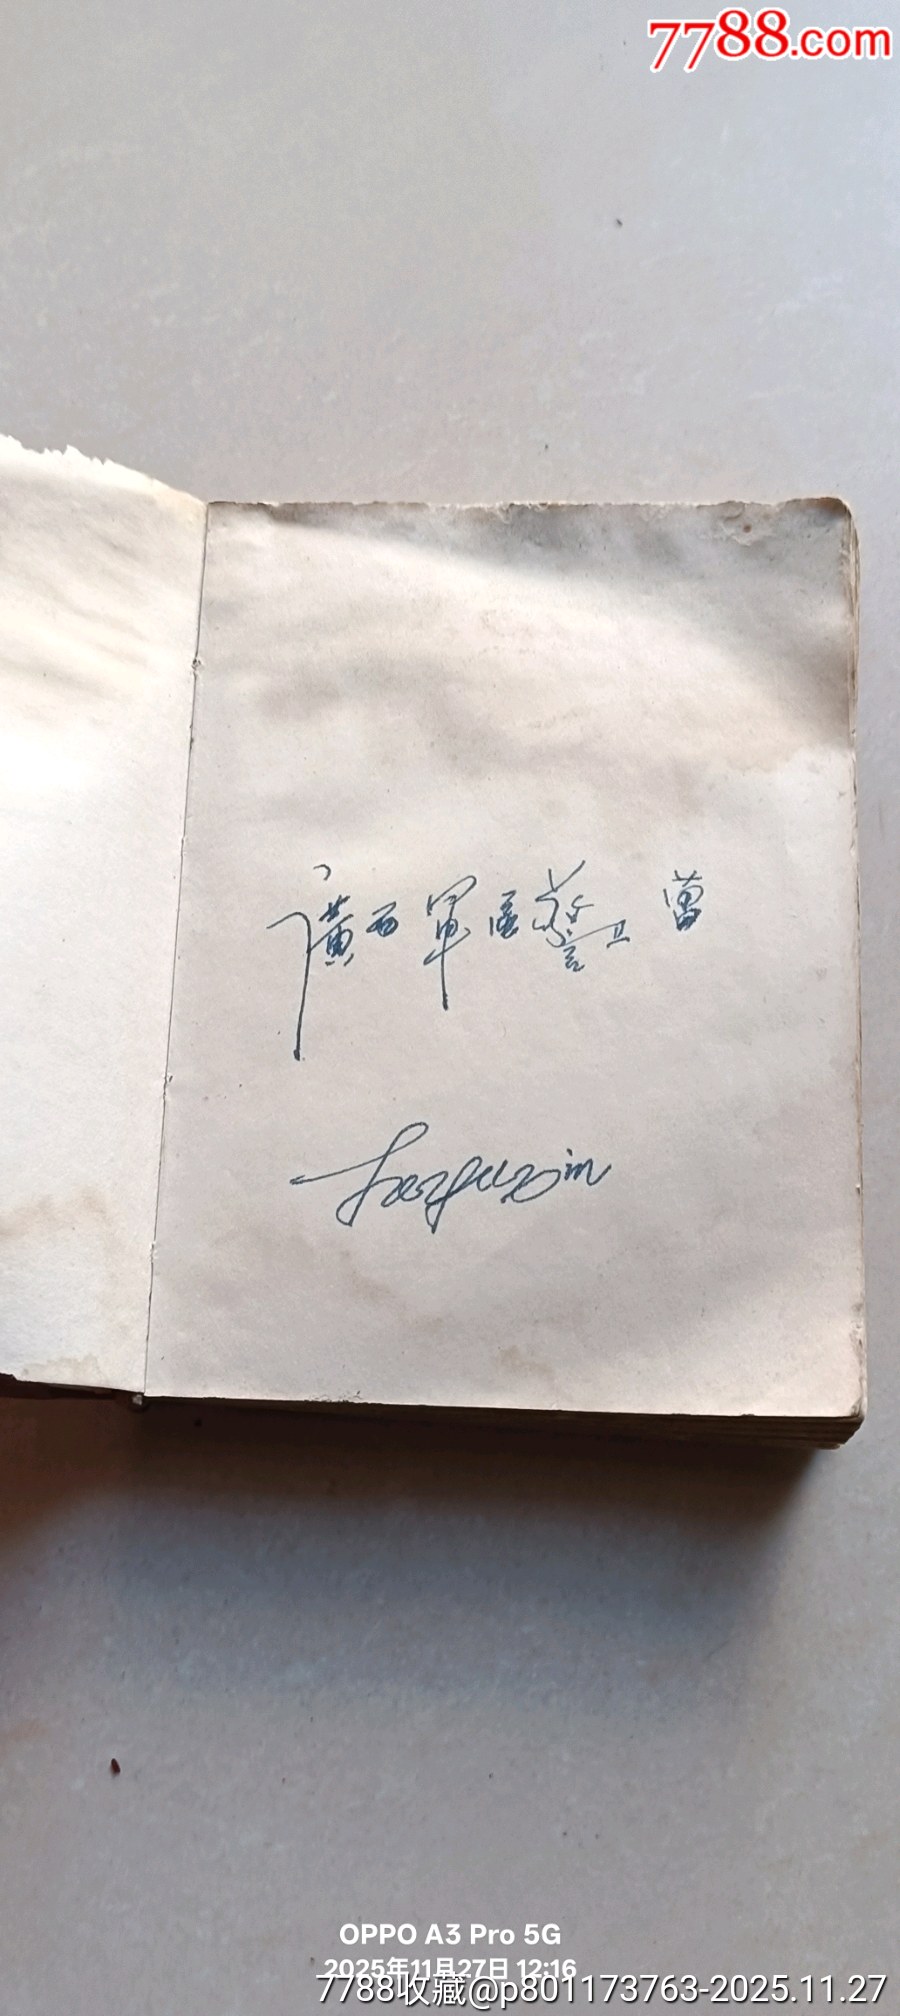 7788.com
廣西軍区警卫营
OPPO A3 Pro 5G
2025年11月27日 12:16
7788收藏@p801173763-2025.11.27